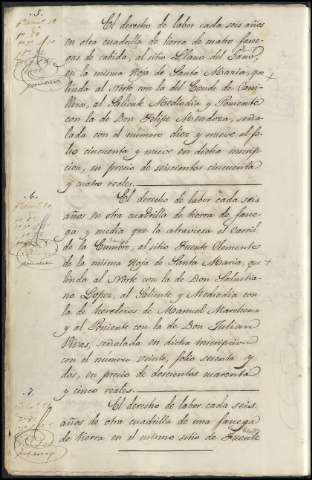 5.
El derecho de labor cada seis años
en otra cuadrilla de tierra de cuatro fane-
gas de cabida, al sitio Llano del
en la misma Hoja de Santa Maria, que
linda al Norte con la del Conde de
al Saliente Mediodia y Poniente
con la de Don Felipe Mendoza, seña-
lada con el numero diez y nueve al fo-
lio cincuenta y nueve en dicha inscrip-
cion, en precio de seiscientos cincuenta
y cuatro reales.
6.
El derecho de labor cada seis
años en otra cuadrilla de tierra de fane-
ga y media que la atraviesa el carril
de la Cumbre, al sitio Fuente Clemente
de la misma Hoja de Santa Maria, que
linda al Norte con la de Don Salustia-
no Lopez, al Saliente y Mediodia con
la de herederos de Manuel
y al Poniente con la de Don Julian
Rivas, señalada en dicha inscripcion
con el numero veinte, folio sesenta y
dos, en precio de doscientos cuarenta
y cinco reales.
7.
El derecho de labor cada seis
años de otra cuadrilla de una fanega
de tierra en el mismo sitio de Fuente